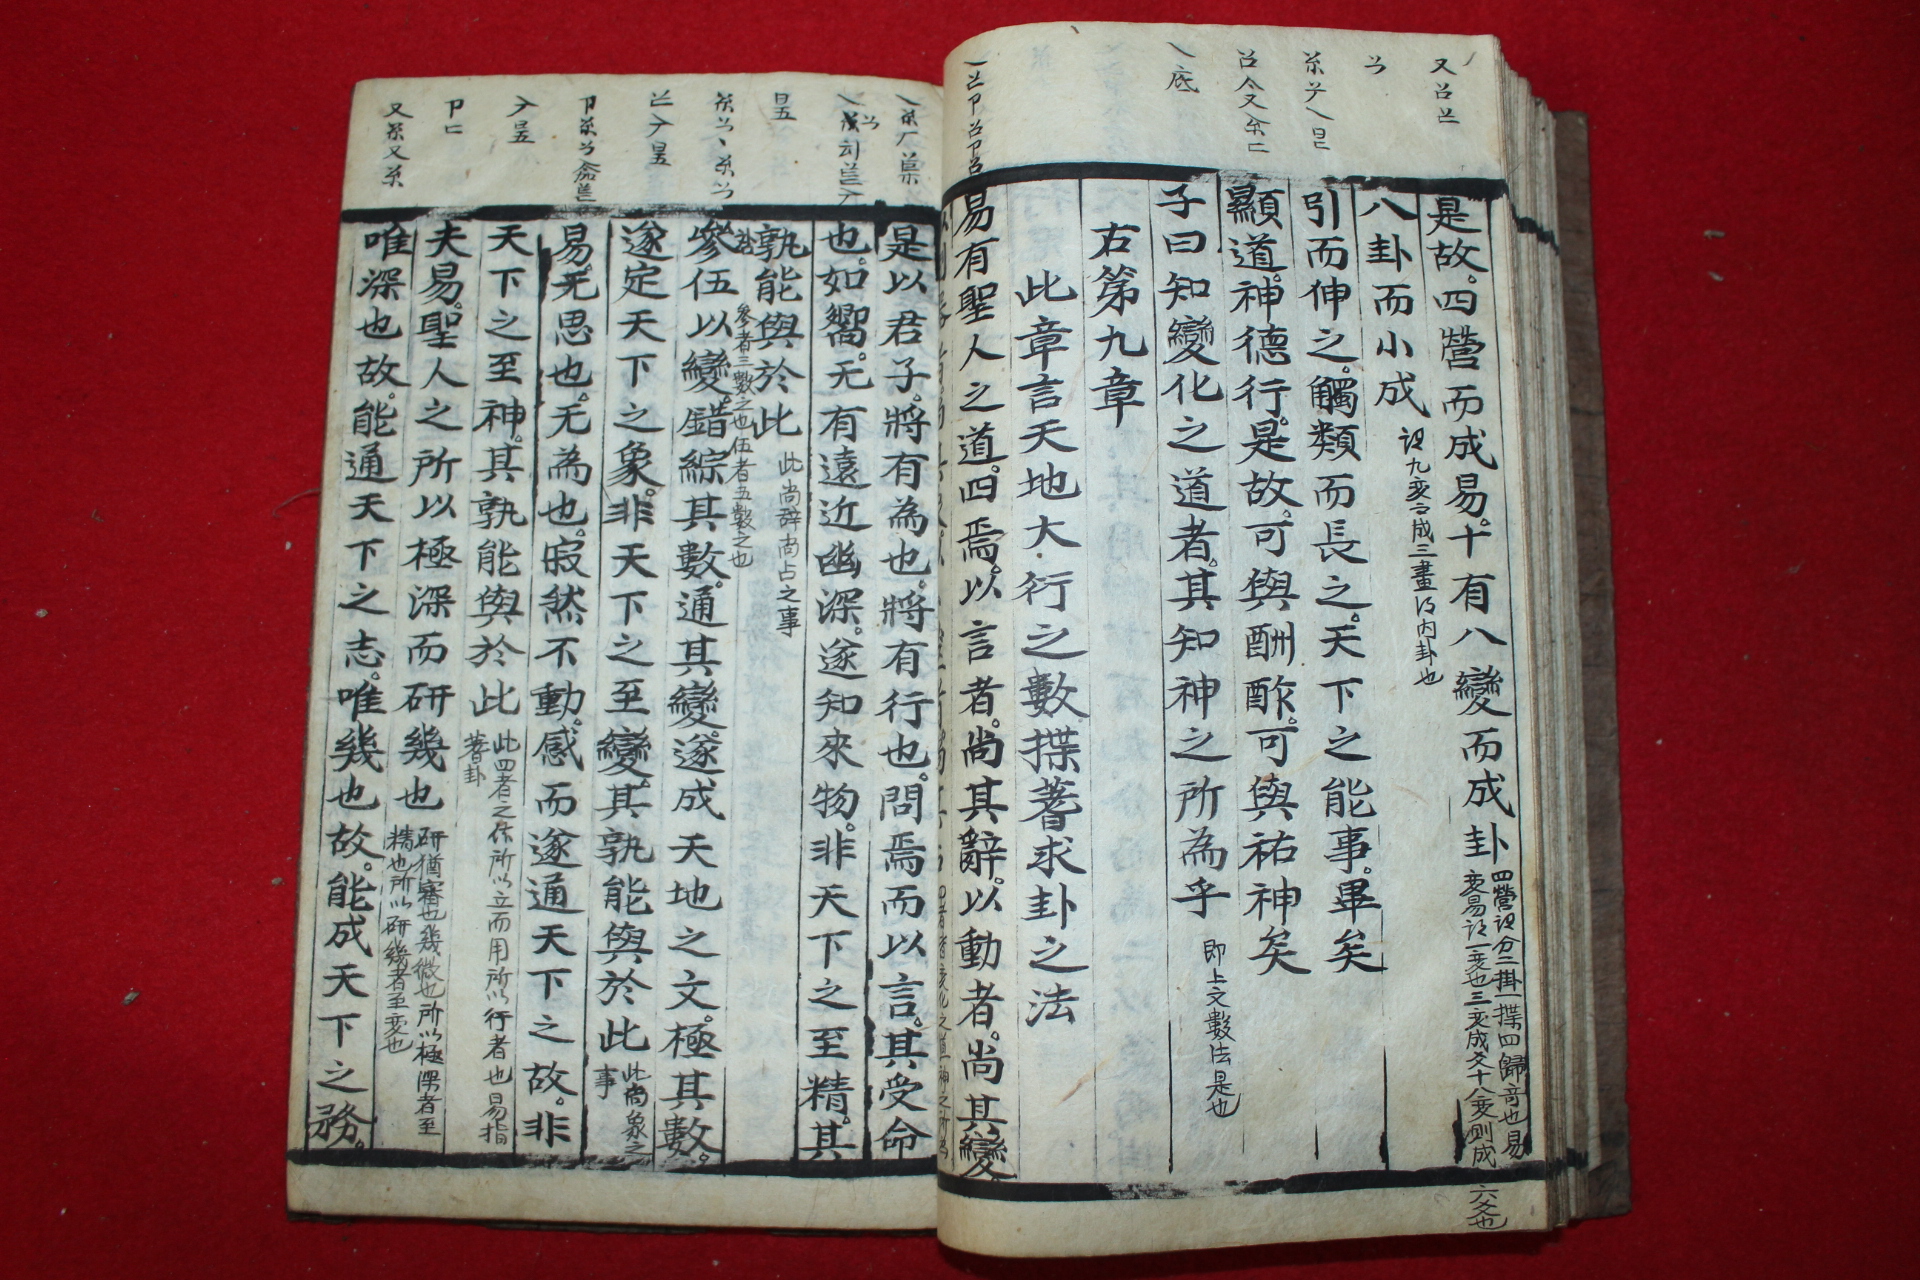 是故。四營而成易。十有八變而成卦
四營謂分二掛一揲四歸奇也易
變易謂一變也三變成爻十八變則成
六爻也
八卦而小成
謂九變而成三畫得內卦也
引而伸之。觸類而長之。天下之能事。畢矣
顯道。神德行。是故。可與酬酢。可與祐神矣
子曰知變化之道者。其知神之所為乎
即上文數法是也
右第九章
此章言天地大衍之數揲蓍求卦之法
易有聖人之道。四焉。以言者。尚其辭。以動者。尚其變。
是以君子。將有為也。將有行也。問焉而以言。其受命
也。如嚮。无有遠近幽深。遂知來物。非天下之至精。其
孰能與於此
此尚辭尚占之事
參者三數之也伍者五數之也
參伍以變。錯綜其數。通其變。遂成天地之文。極其數。
遂定天下之象。非天下之至變。其孰能與於此
此尚象之
事
易。无思也。无為也。寂然不動。感而遂通天下之故。非
天下之至神。其孰能與於此
此四者之体所以立而用所以行者也易指
蓍卦
夫易。聖人之所以極深而研幾也
研猶審也幾微也所以極深者至
精也所以研幾者至變也
唯深也故。能通天下之志。唯幾也故。能成天下之務。